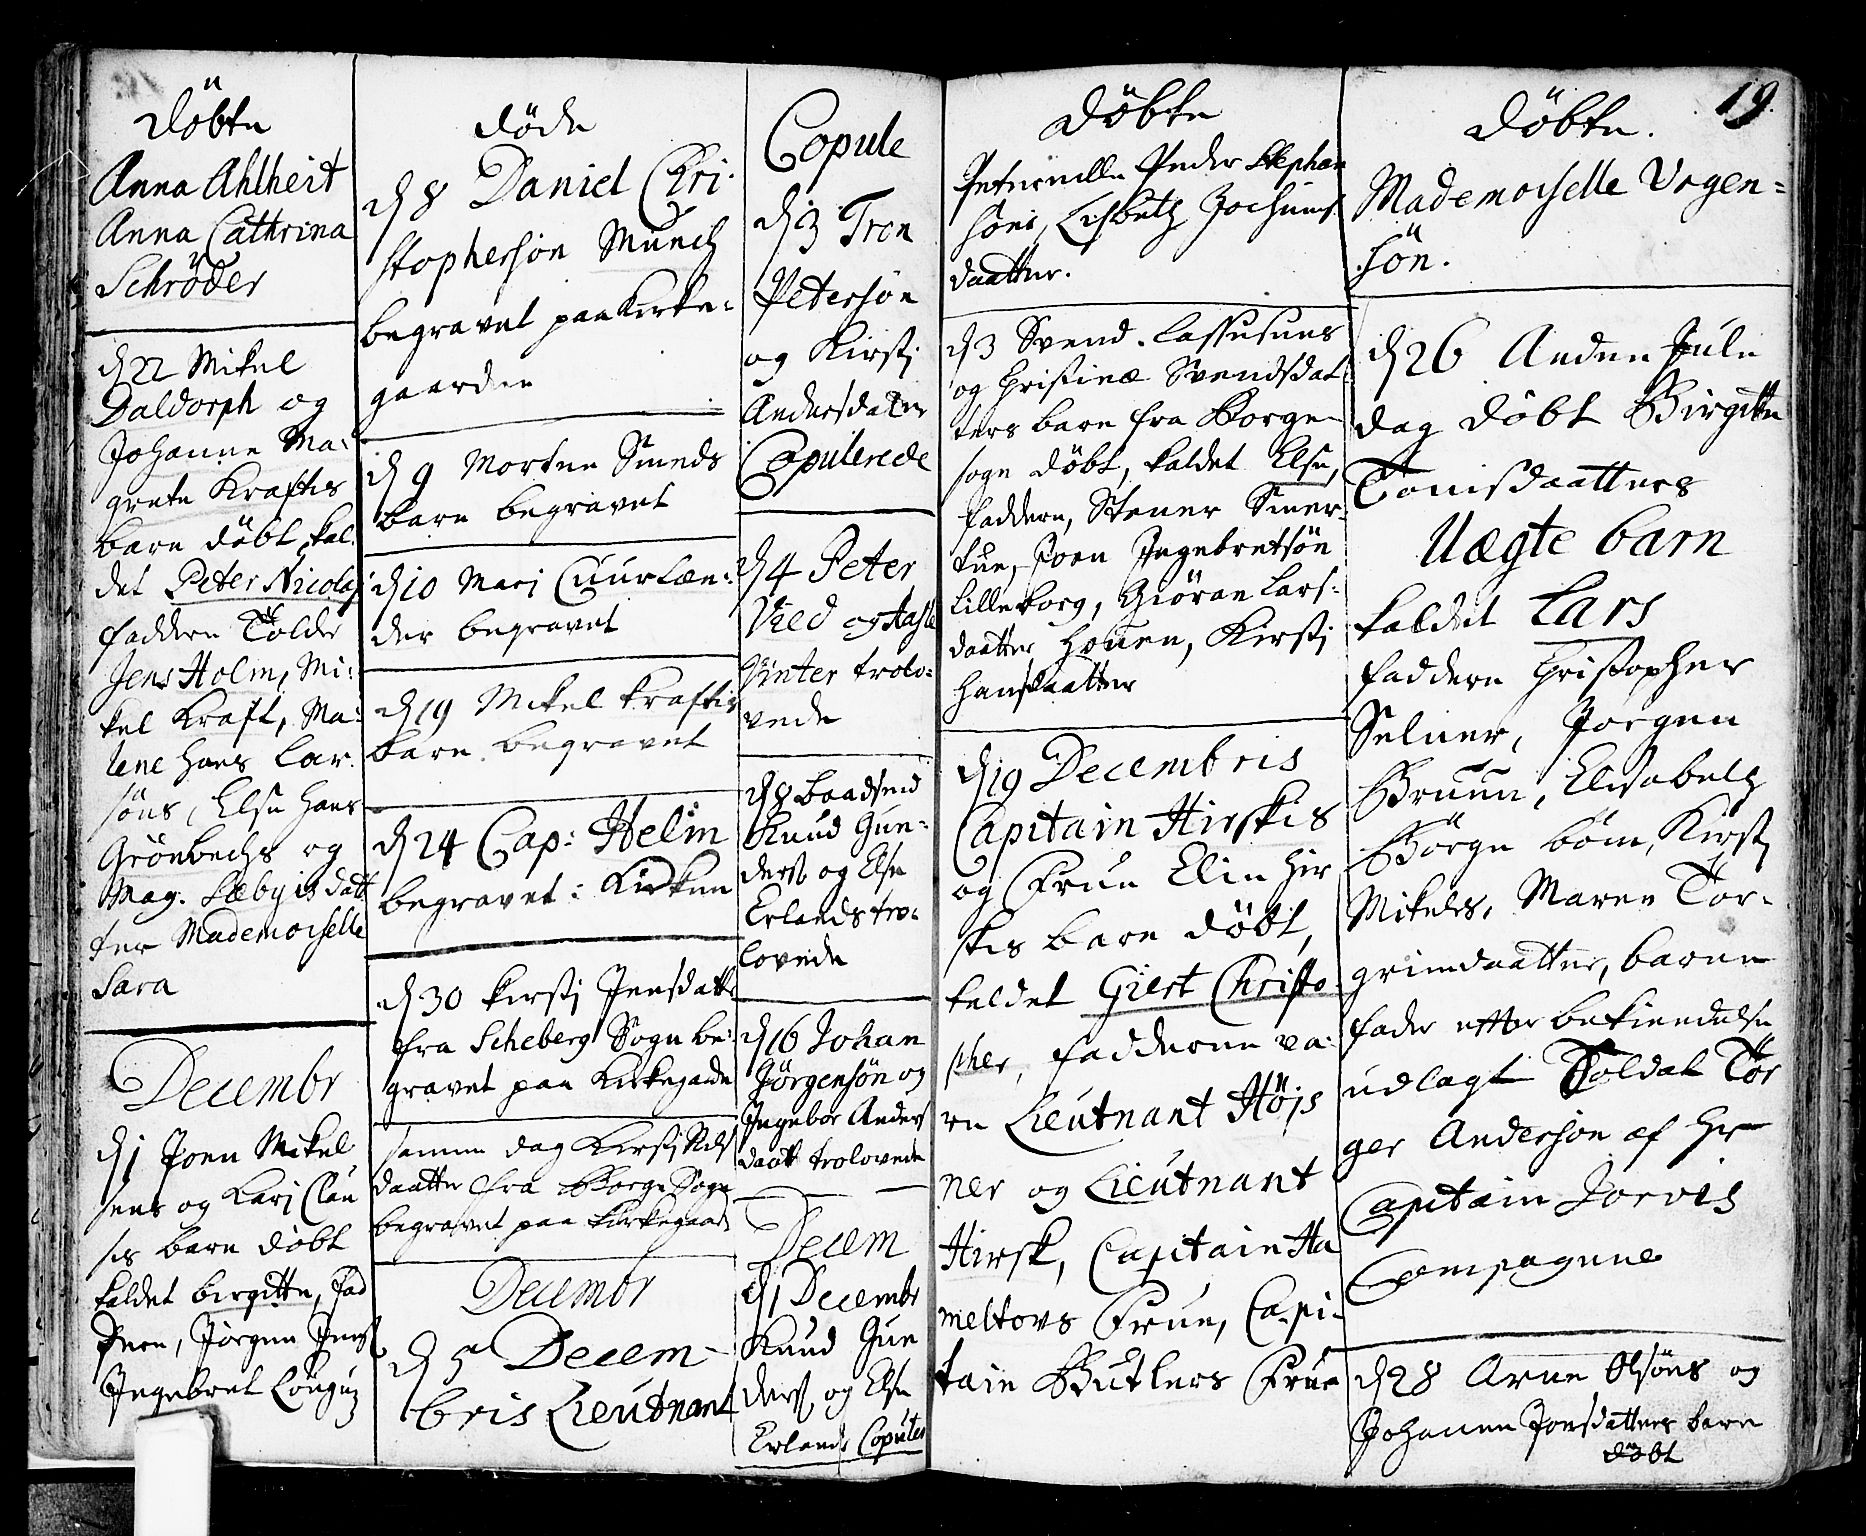 Döbte
Anna Ahlheit
Anna Cathrina
Schröder
d 22 Mikel
Daldorph og
Johanne Ma-
grete Kraftis
barn döbt, kal-
det Peter Nicolaj
faddere Tolder
Jens Holm, Mi-
kel Kraft, Ma-
lene Hans Lar-
söns, Else Hans
Grönbechs og
Mag. Læbyis dat-
ter Mademoiselle
Sara
Decembr
d 1 Joen Mikel
sens og Kari Clau
sis barn döbt
kaldet birgitte, fad
derne, Jörgen Jens
Ingebret
döde
d 8 Daniel Chri-
stophersön Munch
begravet paa Kirke-
gaarden
d 9 Morten Smeds
barn begravet
d 10 Mari Cuurlæn-
der begravet
d 19 Mikel Kraftis
barn begravet
d 24 Cap: Helm
begravet i Kirken
d 30 Kirsti Jensdatt
fra Scheberg Sogn be-
gravet paa Kirkegaarde
samme dag Kirsti Nils
daatter fra Borge Sogn
begravet paa Kirkegaard
Decembr
d 5 Decem-
bris Lieutnant
Copule
d 3 Tron
Petersön
og Kirsti
Andersdatter
Copulerede
d 4 Peter
Vild og Aasle
Ginter trolo-
vede
d 8 baadsmd
Knud Gun-
ders og Else
Erlands tro-
lovede
d 16 Johan
Jörgensön og
Ingebor Anders
daatt trolovede
Decem
d 1 Decembr
Knud Gun
ders og Else
Erlands Copuler
Döbte
Peternelle Peder Stephan
söns, Lisbeth Jochums
daatter.
d 3 Svend Lassesuns
og Christinæ Svendsdat
ters barn fra Borge
sogn döbt, kaldet Else,
faddere, Stener
Joen Ingebretsön
Lilleborg, Giöran Lars-
daatter Houen, Kirsti
Hansdaatter
d 19 Decembris
Capitain Hirskis
og Frue Elin Hir
skis barn döbt,
kaldet Giert Christo
pher, fadderne va-
re Lieutnant Höjs
ner og Lieutnant
Hirsk, Capitain Ha
meltovs Frue, Capi-
tain Butlers Frue
19.
Döbte.
Mademoiselle Vogen-
sön.
d 26 Anden Jule
dag döbt Birgitte
Tonisdaatters
Uægte barn
kaldet Lars
faddere Christopher
Selner, Jörgen
Bruun, Elisabeth
Börge böm, Kirsti
Mikels, Maren Tor-
grimdaatter, barne
fader efter bekiendelse
udlagt Soldat Tör
ger Andersön af Hr
Capitain Jorvis
Compagnie
d 28 Arne Olsöns og
Johanne Jonsdatters barn
döbt